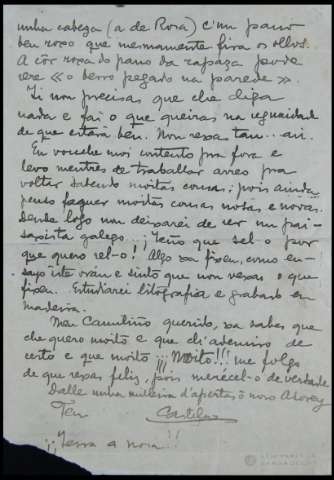 unha cabeza (a de Rosa) c'un pano
ben roxo que mesmamente fira os ollos.
A côr roxa do pano da rapaza pode
vere «o berro pegado na parede».
Ti non precisas que che diga
nada e fai o que queiras na seguridade
de que estará ben. Non sexas tan... así.
Eu vou che moi contento pra fora e
levo mentres de traballar arreo pra
voltar sabendo moitas cousas; pois ainda
penso faguer moitas cousas notas e novas.
Dende logo non deixarei de ser un pai-
saxista galego... ¡Teño que sel-o por
que quero sel-o! Algo xa fixen, como en-
sayo iste vran e sinto que non vexas o que
fixen. Estudiarei litografia e grabado en
madeira.
Meu Camiliño querido, xa sabes que
che quero moito e que ch'ademiro de
certo e que moito ¡¡¡Moito!!! me folgo
de que sexas feliz, pois merécel-o de verdade
Dalle unha mulleira d'apertas ô noso
Teu Castelao
¡¡Terra a nosa!!